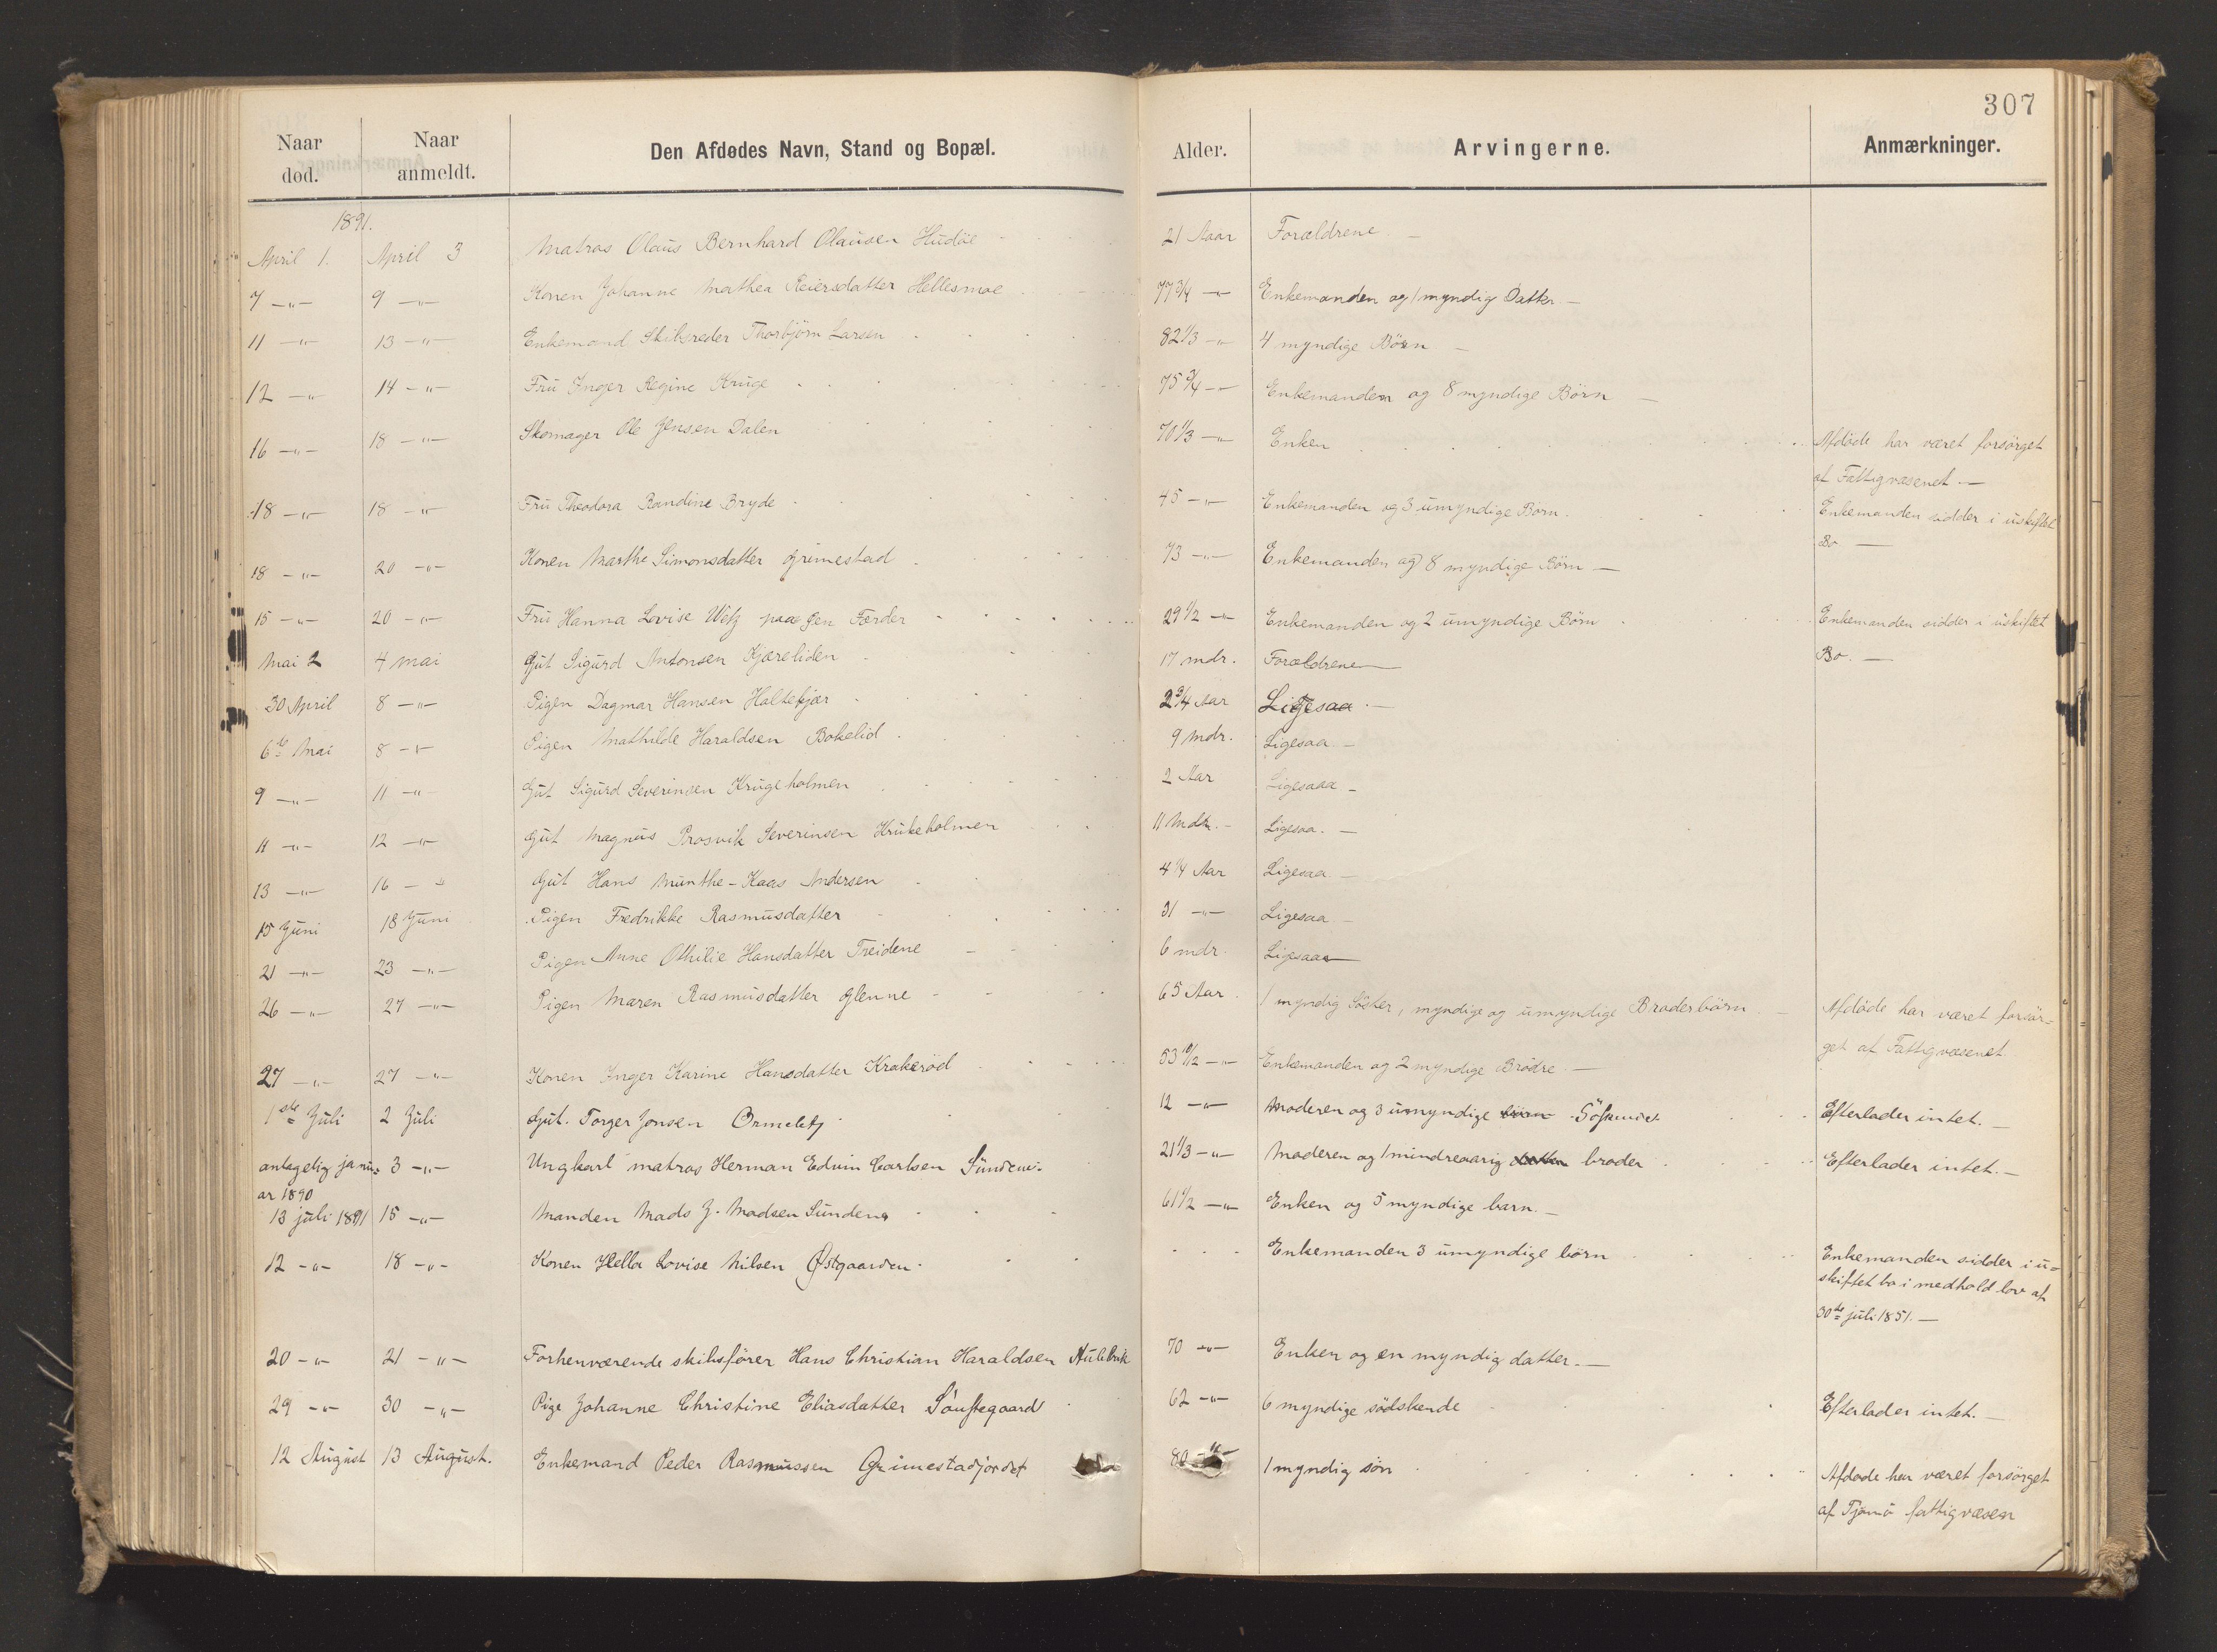 307
Naar død. Naar anmeldt. Den Afdødes Navn, Stand og Bopæl. Alder. Arvingerne. Anmærkninger.
1891.
April 1. April 3 Matros Olaus Bernhard Olausen Hudöe 21 Aar Forældrene. —
7 —"— 9 —"— Konen Johanne Mathea Reiersdatter Hellesmoe 77 3/4 —"— Enkemanden og 1 myndig Datter. —
11 —"— 13 —"— Enkemand Skibsreder Thorbjörn Larsen 82 1/3 —"— 4 myndige Börn —
12 —"— 14 —"— Fru Inger Regine Kruge 75 3/4 —"— Enkemanden og 8 myndige Börn —
16 —"— 18 —"— Skomager Ole Jensen Dalen 70 1/3 —"— Enken Afdöde har været forsörget
af Fattigvæsenet —
18 —"— 18 —"— Fru Theodora Randine Bryde 45 —"— Enkemanden og 3 umyndige Börn. Enkemanden sidder i uskiftet
Bo —
18 —"— 20 —"— Konen Marthe Simonsdatter Grimestad 73 —"— Enkemanden og 8 myndige Börn —
15 —"— 20 —"— Fru Hanna Lovise paa Færder 29 1/2 —"— Enkemanden og 2 umyndige Börn Enkemanden sidder i uskiftet
Mai 2 4 mai Gut Sigurd Antonsen Kjæreliden 17 mdr. Forældrene — Bo. —
30 April 8 —"— Pigen Dagmar Hansen Haltekjær 2 3/4 Aar Ligesaa. —
6te Mai 8 —"— Pigen Mathilde Haraldsen Bokelid 9 Mdr. Ligesaa —
9 —"— 11 —"— Gut Sigurd Severinsen Krugeholmen 2 Aar Ligesaaa —
11 —"— 12 —"— Gut Magnus Severinsen Krukeholmen 11 Mdr. — Ligesaa. —
13 —"— 16 —"— Gut Hans Munthe-Kaas Andersen 4 1/4 Aar Ligesaa —
15 Juni 18 Juni Pigen Fredrikke Rasmusdatter 31 —"— Ligesaa —
21 —"— 23 —"— Pigen Anne Othilie Hansdatter Treidene 6 mdr. Ligesaa —
26 —"— 27 —"— Pigen Maren Rasmusdatter Glenne 65 Aar. 1 myndig Söster, myndige og umyndige Broderbörn. — Afdöde har været forsör-
get af Fattigvæsenet
27 —"— 27 —"— Konen Inger Karine Hansdatter Krakeröd 53 —"— Enkemanden og 2 myndige Brödre. —
1ste Juli 2 Juli Gut. Torger Jonsen Ormelet 12 —"— Moderen og 3 umyndige börn Söskende Efterlader intet. —
antagelig janu- 3 —"— Ungkarl matros Herman Edvin Carlsen Sundene. 21 1/3 —"— Moderen og 1 mindreaarig datter broder Efterlader intet. —
ar 1890
13 juli 1891 15 —"— Manden Mads J. Madsen Sundene 61 1/2 —"— Enken og 5 myndige barn. —
12 —"— 18 —"— Konen Hella Lovise Nilsen Östgaarden. Enkemanden 3 umyndige börn Enkemanden sidder i u-
skiftet bo i medhold lov af
30te juli 1851. —
20 —"— 21 —"— Forhenværende skibsförer Hans Christian Haraldsen Hulebak 70 —"— Enken og en myndig datter. —
29 —"— 30 —"— Pige Johanne Christine Eliasdatter 62 —"— 6 myndige södskende Efterlader intet. —
12 August 13 August. Enkemand Peder Rasmussen Grimestadjordet 80 —"— 1 myndig sön Afdöde har været forsörget
af Tjömö fattigvæsen